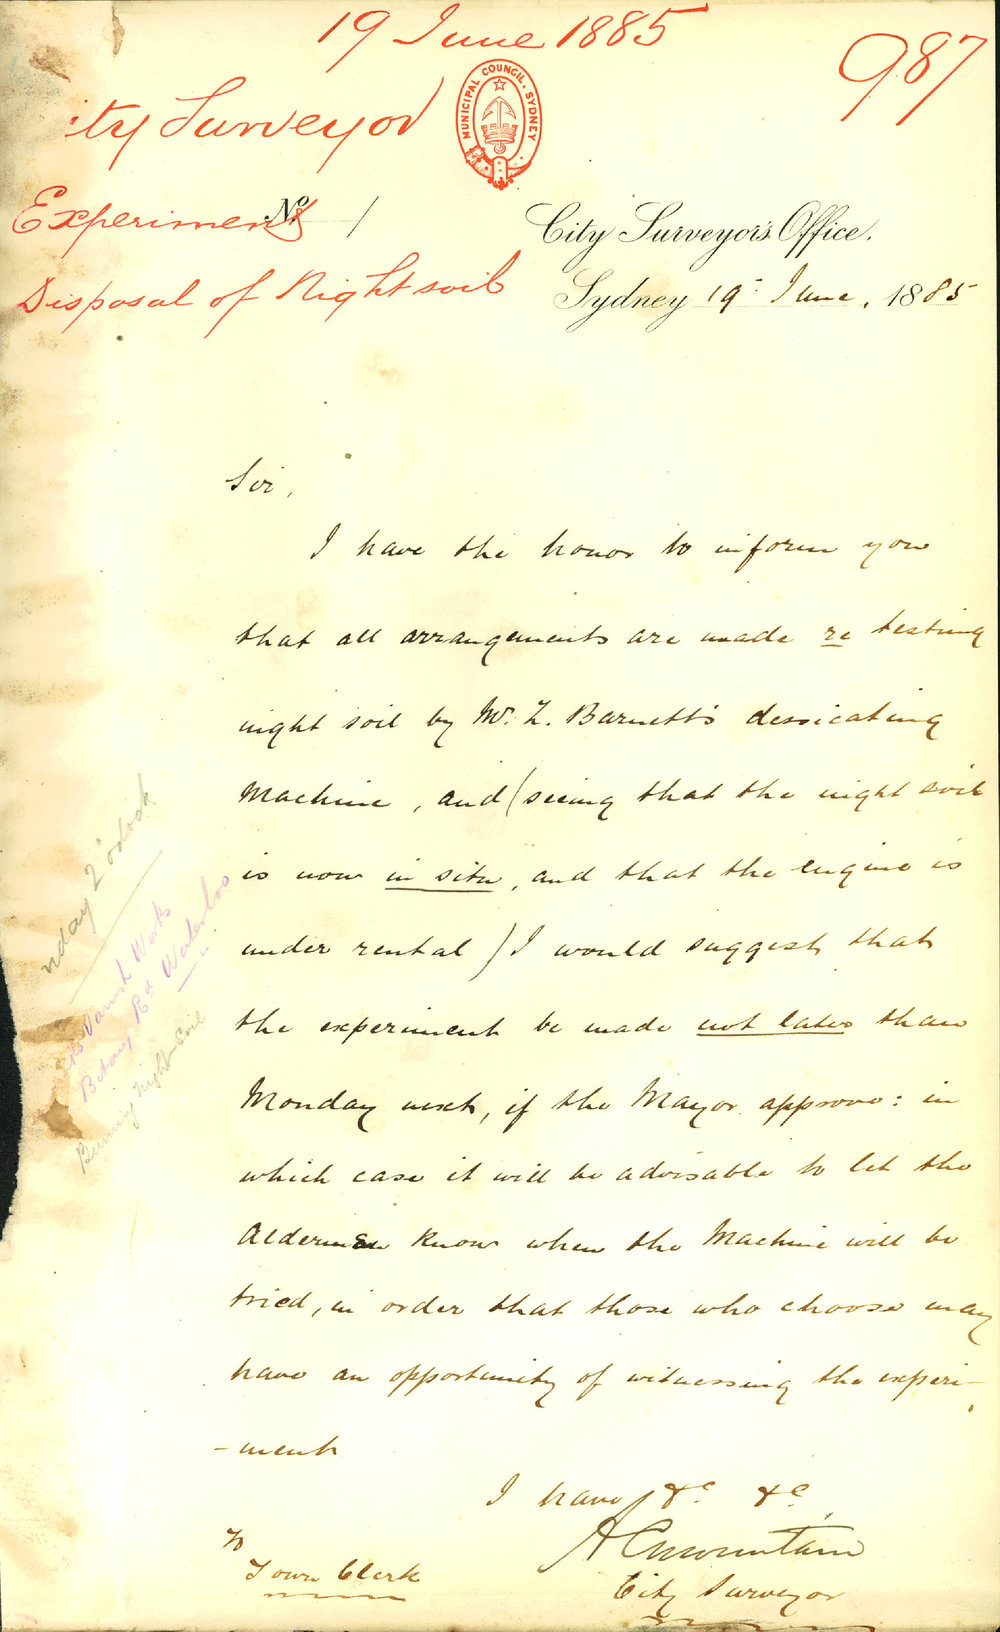 19 June 1885
987
MUNICIPAL COUNCIL. SYDNEY
ity Surveyor
Experiment
No. /
Disposal of Nightsoil
City Surveyor's Office.
Sydney 19th June, 1885
Sir,
I have the honor to inform you
that all arrangements are made re testing
night soil by Mr. Z. Barnett's dessicating
Machine, and (seeing that the night soil
is now in situ, and that the engine is
under rental) I would suggest that
the experiment be made not later than
Monday next, if the Mayor approve: in
which case it will be advisable to let the
Aldermen know when the Machine will be
tried, in order that those who choose may
have an opportunity of witnessing the experi-
-ment
I have &c &c
A C Mountain
City Surveyor
To
Town Clerk
nday 2 o'clock
Varnish Works
Botany Rd Waterloo
Burning Night-Soil